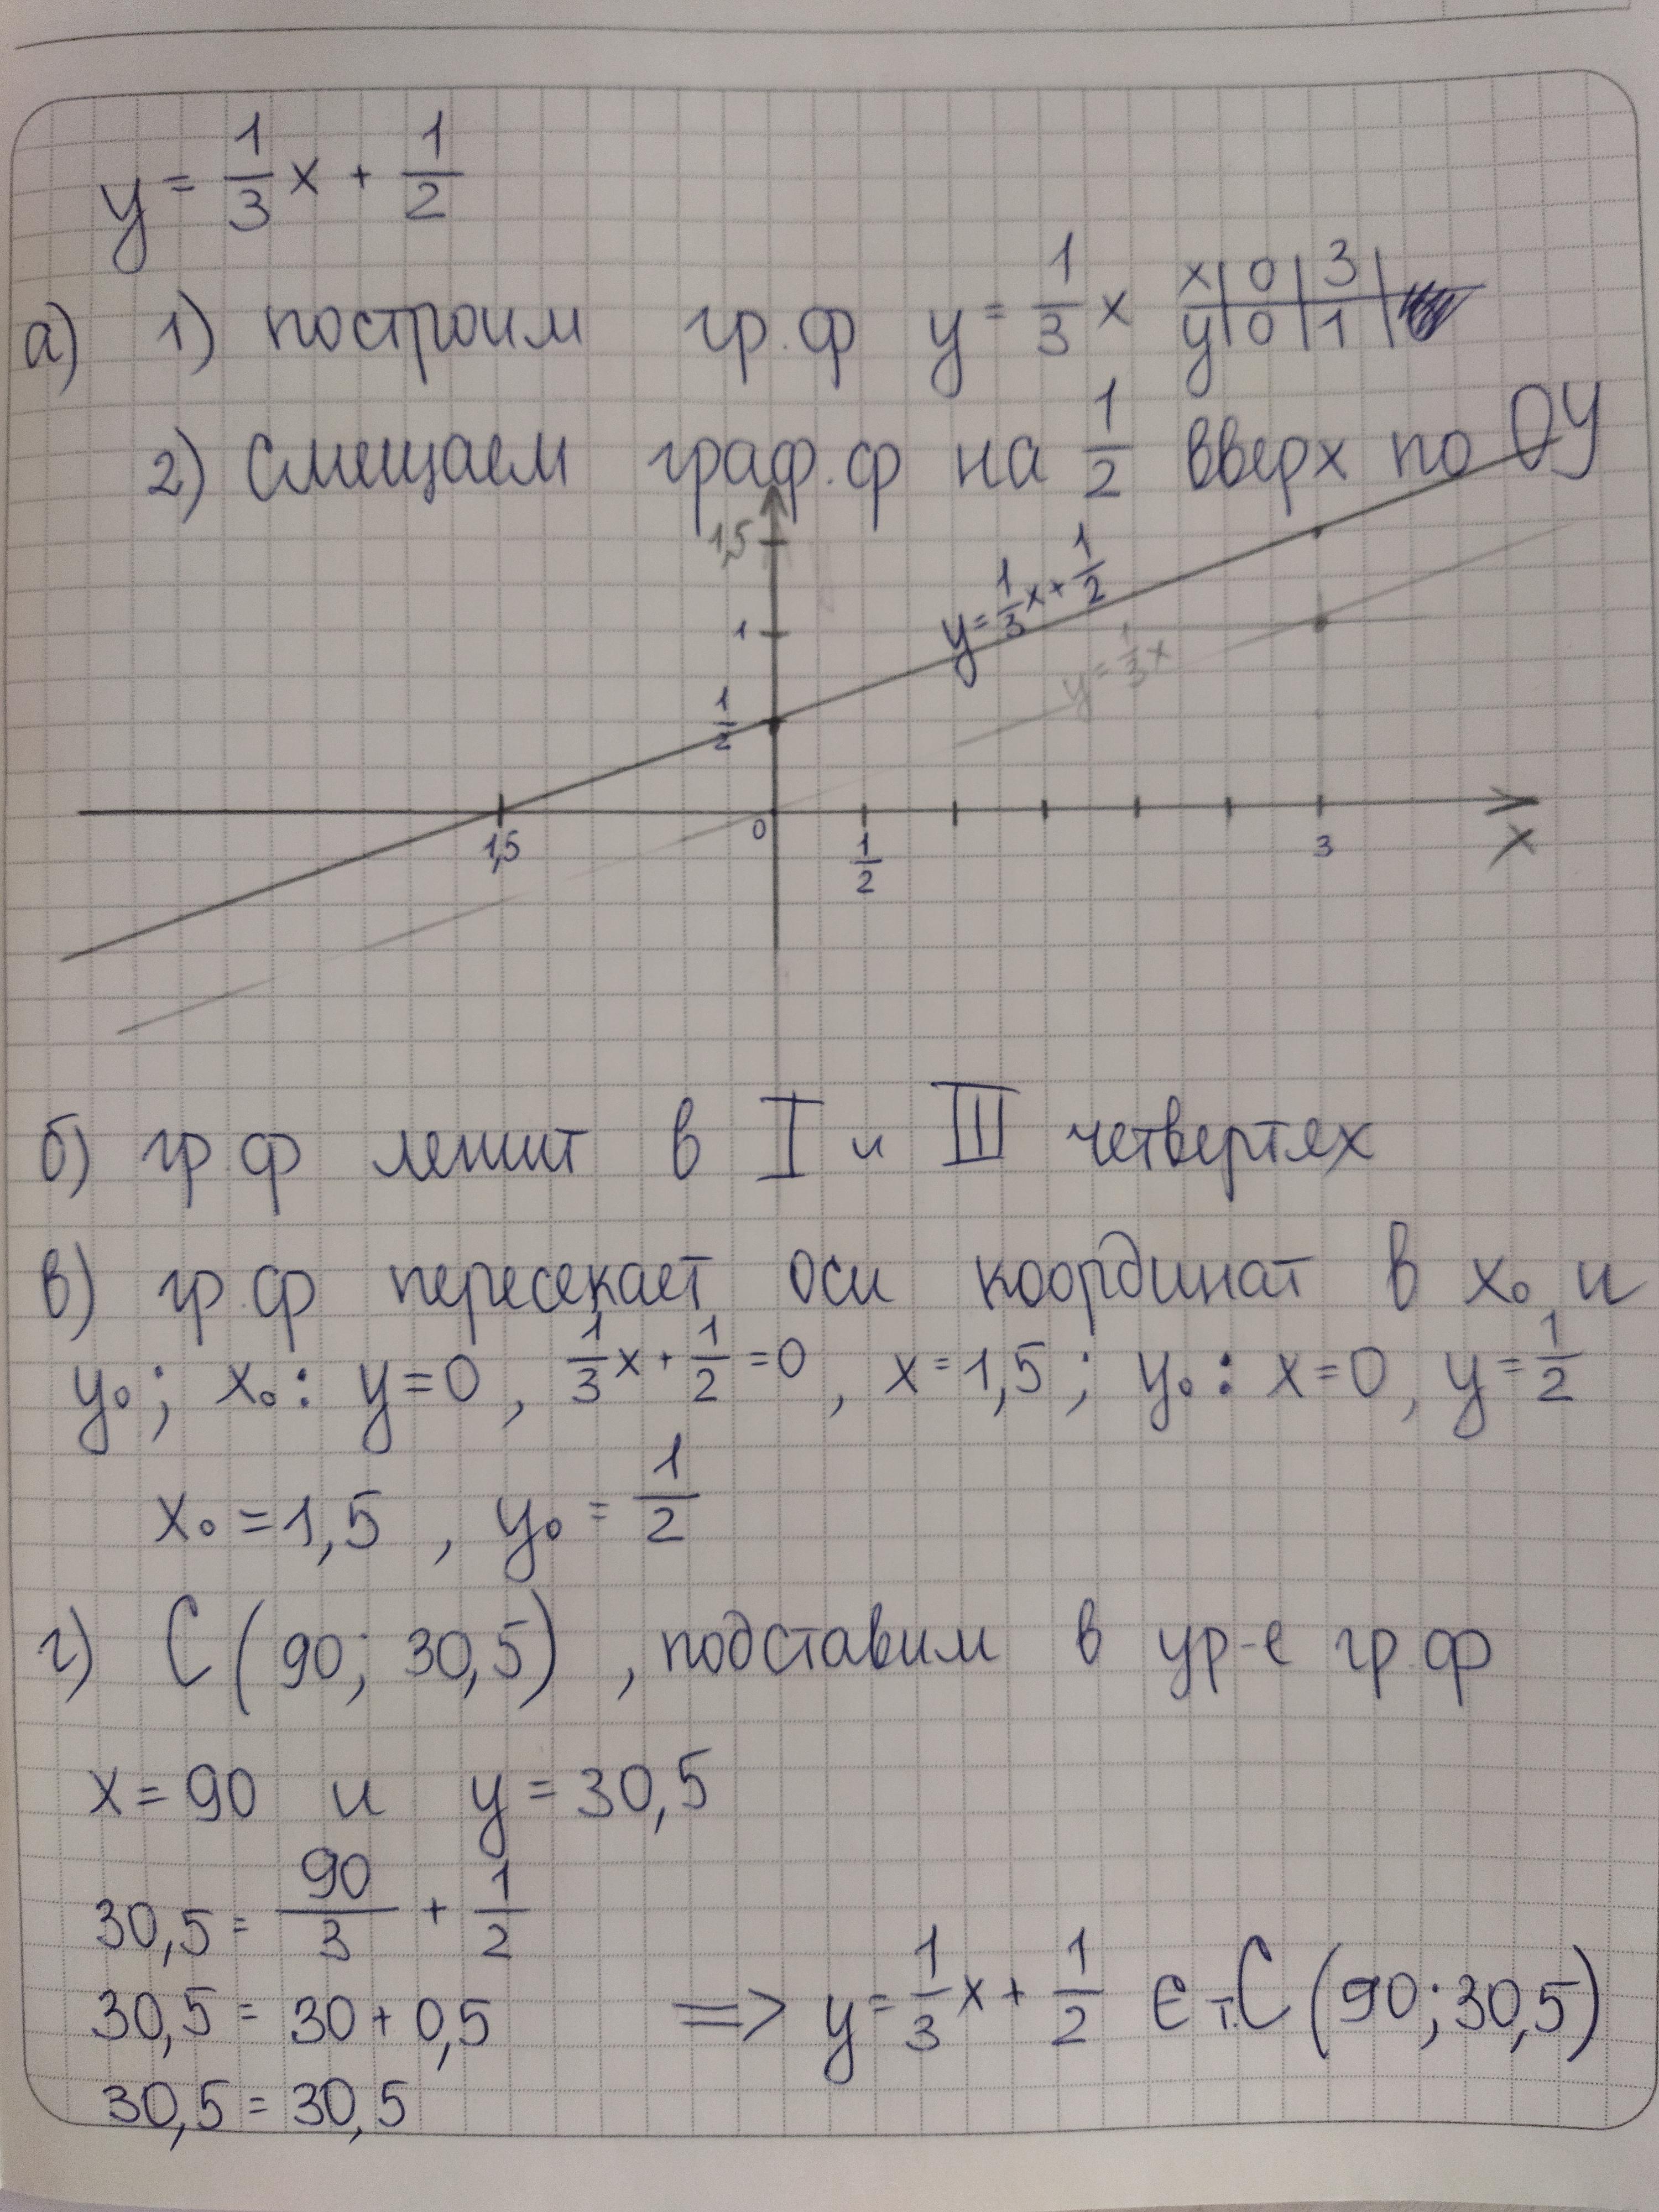 y = 1/3 x + 1/2
а) 1) построим гр.ф y = 1/3 x x | 0 | 3 |
y | 0 | 1 |
2) Смещаем граф.ф на 1/2 вверх по OY
1,5
y = 1/3 x + 1/2
1
y = 1/3 x
1/2
0
1,5
1/2
3
X
б) гр.ф лежит в I и III четвертях
в) гр.ф пересекает оси координат в x₀ и
y₀; x₀: y=0, 1/3 x + 1/2 = 0, x = 1,5; y₀: x=0, y = 1/2
x₀ = 1,5, y₀ = 1/2
г) C (90; 30,5), подставим в ур-е гр.ф
x = 90 и y = 30,5
30,5 = 90/3 + 1/2
30,5 = 30 + 0,5 => y = 1/3 x + 1/2 ∈ т.C (90; 30,5)
30,5 = 30,5